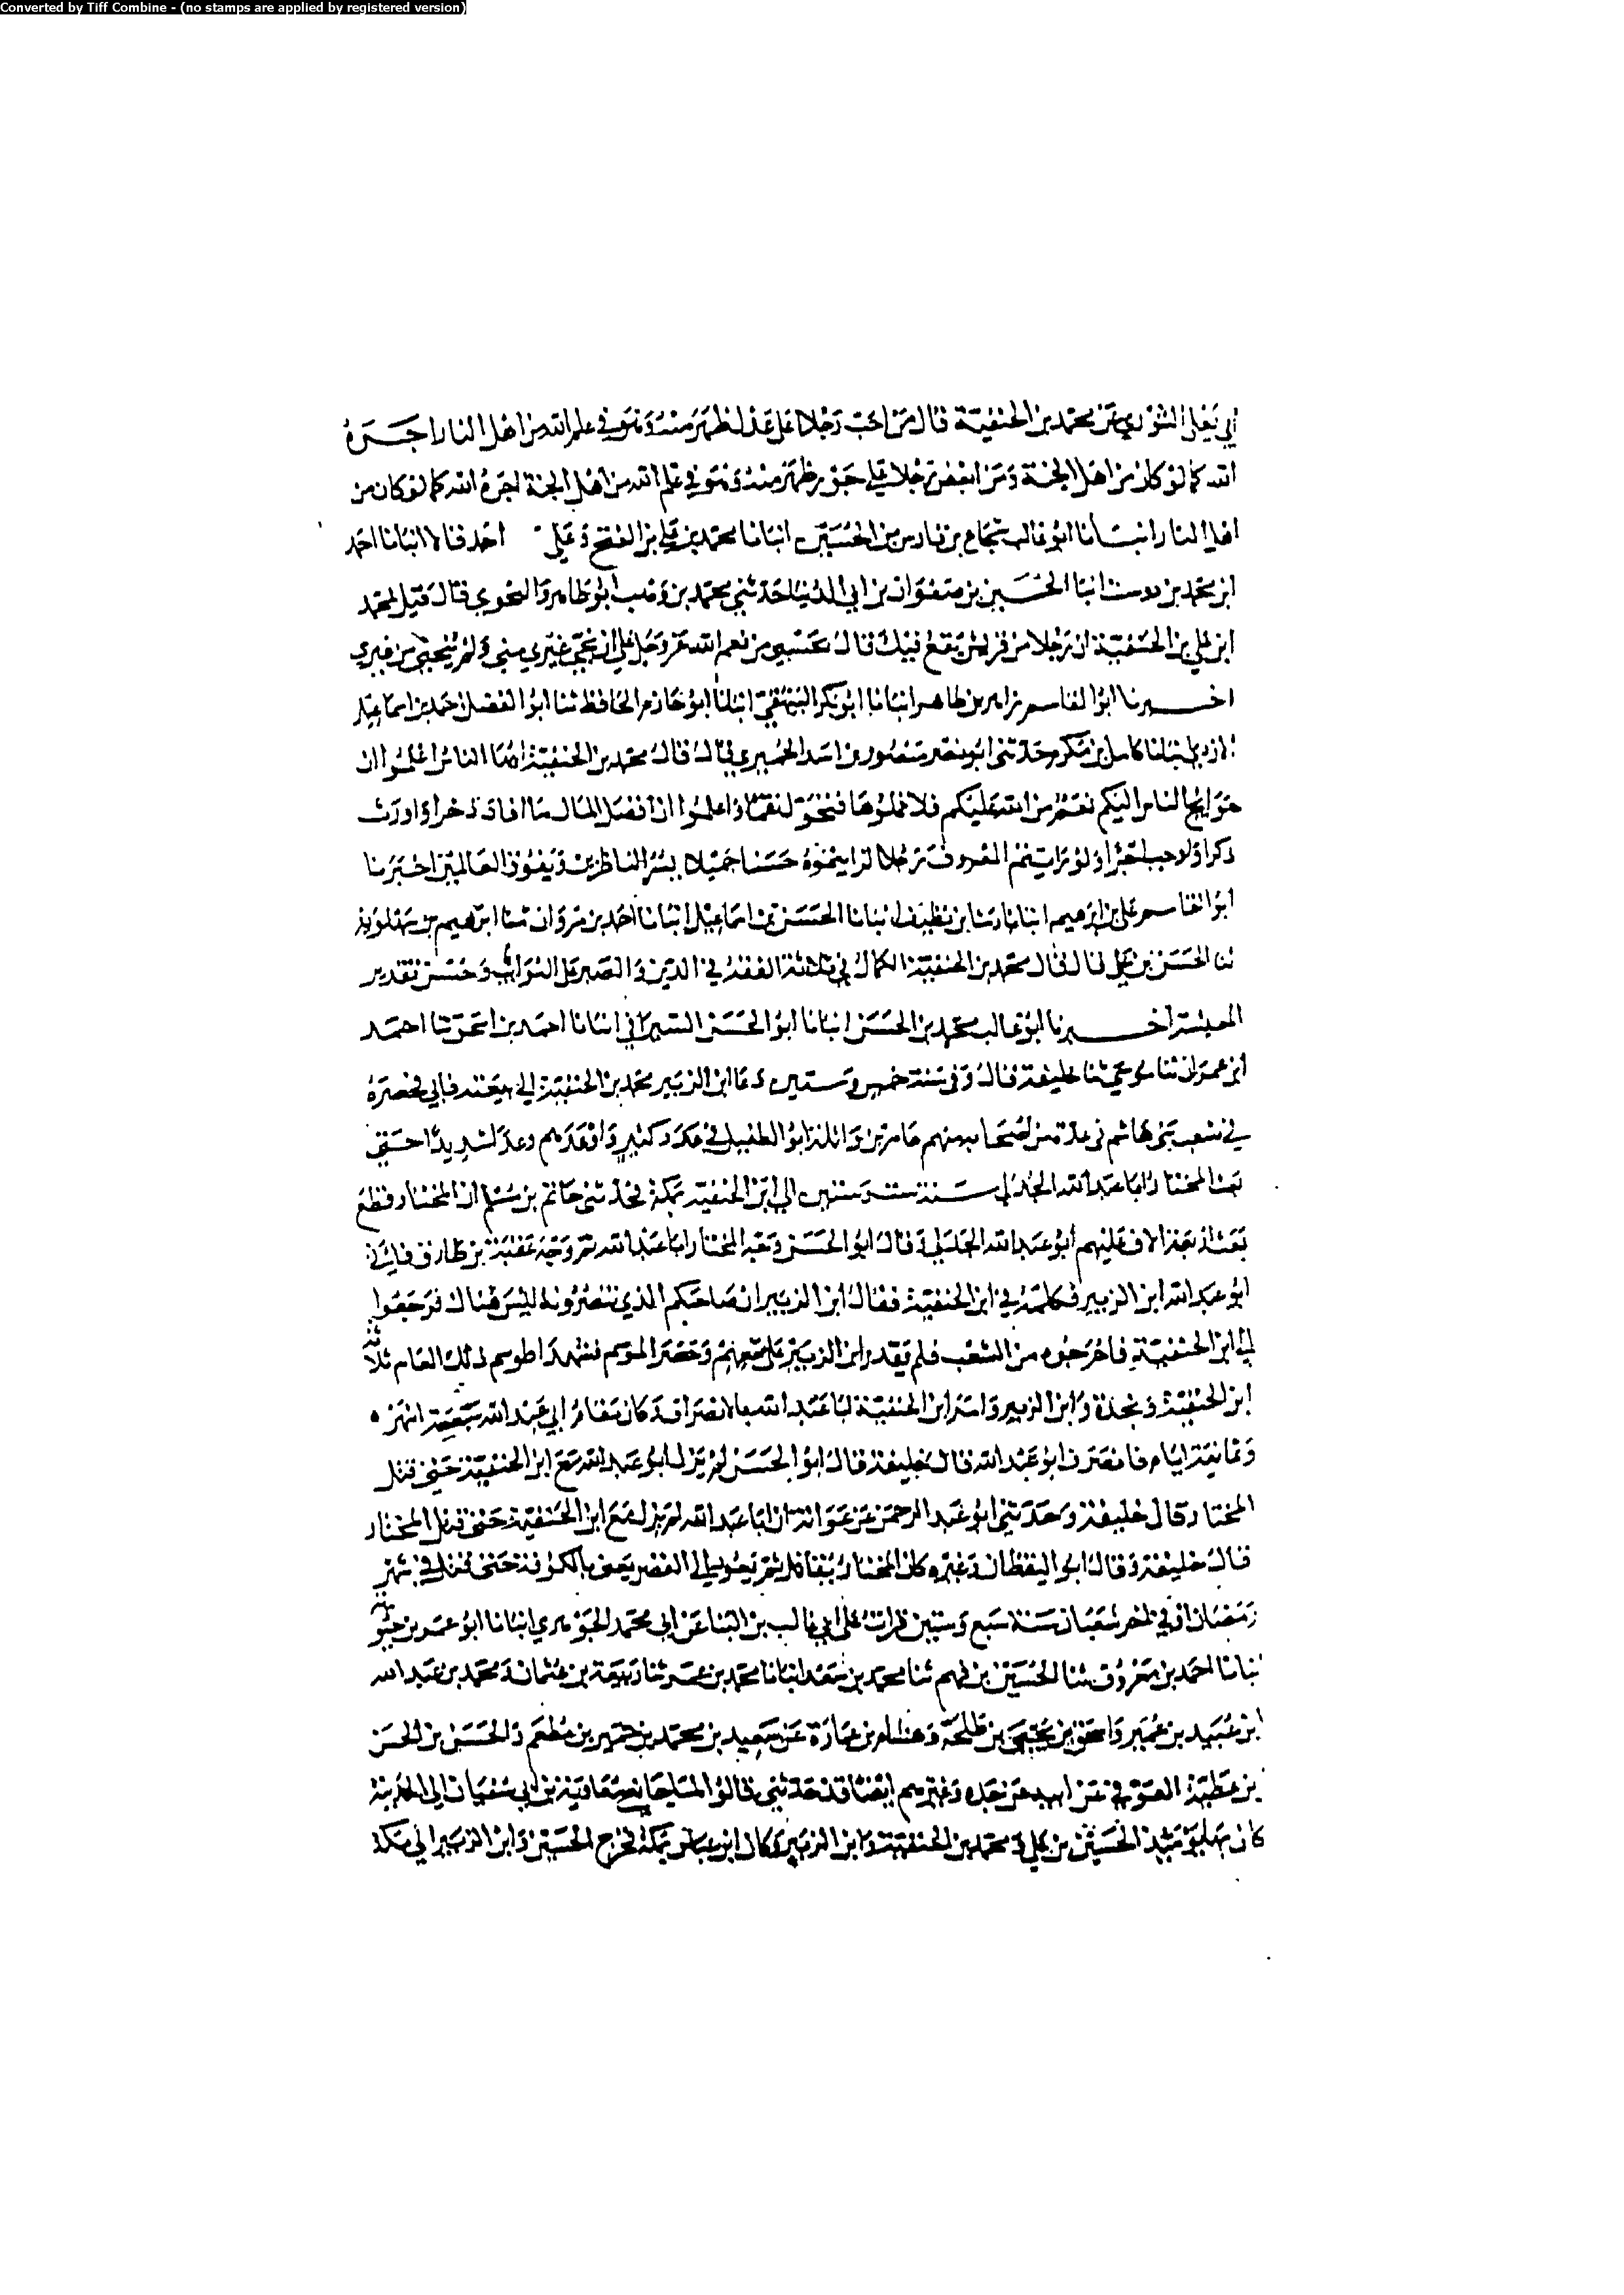 Converted by Tiff Combine - (no stamps are applied by registered version)
ابي يعلى الثوري عن محمد بن الحنفية قال من احب رجلا على عدل ظهر منه وهو في علم الله من اهل النار اجره
الله كما لو كان من اهل الجنة ومن ابغض رجلا على جور ظهر منه وهو في علم الله من اهل الجنة اجره الله كما لو كان من
اهل النار انبانا ابو غالب شجاع بن فارس بن الحسين انبانا محمد بن علي بن الفتح وعلي بن احمد قالا انبانا احمد
ابن محمد بن دوست انبا الحسين بن صفوان بن ابي الدنيا حدثني محمد بن وهب ابو طاهر النحوي قال قيل لمحمد
ابن علي بن الحنفية ان رجلا من قريش يقع فيك قال بحسبي من نعم الله عز وجل علي ان نجى غيري مني ولم ينجني من غيري
اخبرنا ابو القاسم زاهر بن طاهر انبانا ابو بكر البيهقي انبانا ابو حازم الحافظ ثنا ابو الفضل احمد بن اسماعيل
الازدي انبانا كامل بن مكرم حدثني ابو نصر منصور بن اسد الحميري قال قال محمد بن الحنفية ايها الناس اعلموا ان
حوايج الناس اليكم نعم من الله عليكم فلا تملوها فتحول نقما واعلموا ان افضل المال ما افاد ذخرا واورث
ذكرا واوجب اجرا ولو رايتم المعروف رجلا لرايتموه حسنا جميلا يسر الناظرين ويفوق العالمين اخبرنا
ابو القاسم علي بن ابرهيم انبانا رشا بن نظيف انبانا الحسن بن اسماعيل انبانا احمد بن مروان ثنا ابرهيم بن سهلويه
ثنا الحسن بن علي قال قال محمد بن الحنفية الكمال في ثلاثة الفقه في الدين والصبر على النوائب وحسن تقدير
المعيشة اخبرنا ابو غالب محمد بن الحسن انبانا ابو الحسن السيرافي انبانا احمد بن اسحق ثنا احمد
ابن عمران ثنا موسى ثنا خليفة قال وفي سنة خمس وستين دعا ابن الزبير محمد بن الحنفية الى بيعته فابى فحصره
في شعب بني هاشم في عدة من اصحابه منهم عامر بن واثلة ابو الطفيل في عدد كثير واوعدهم وعدا شديدا حتى
بعث المختار ابا عبد الله الجدلي سنة ست وستين الى ابن الحنفية بمكة فحدثني حاتم بن مسلم ان المختار قطع
بعث اربعة الاف عليهم ابو عبد الله الجدلي قال ابو الحسن وجه المختار ابا عبد الله ثم وجه عقبة بن طارق فاتى
ابو عبد الله ابن الزبير فكلمه في ابن الحنفية فقال ابن الزبير ان صاحبكم الذي تنصرونه ليس هناك فرجعوا
الى ابن الحنفية فاخرجوه من الشعب فلم يقدر ابن الزبير على منعهم وحضر الموسم فشهد الموسم ذلك العام ثلاثة
ابن الحنفية ونجدة وابن الزبير وامر ابن الحنفية ابا عبد الله بالانصراف وكان مقام ابي عبد الله سبعة اشهر
وثمانية ايام فانصرف ابو عبد الله قال خليفة قال ابو الحسن لم يزل ابو عبد الله مع ابن الحنفية حتى قتل
المختار قال خليفة وحدثني ابو عبد الرحمن عن عوانة ان ابا عبد الله لم يزل مع ابن الحنفية حتى قتل المختار
قال خليفة وقال ابو اليقظان وغيره كان المختار يقاتل ثم يعود الى القصر يعني بالكوفة حتى قتل في شهر
رمضان او في اخر شعبان سنة سبع وستين قرات على ابي غالب بن البنا عن ابي محمد الجوهري انبانا ابو عمر بن حيوية
انبانا احمد بن معروف ثنا الحسين بن فهم ثنا محمد بن سعد انبانا محمد بن عمر ثنا ربيعة بن عثمان ومحمد بن عبد الله
ابن عبيد بن عمير واسحق بن يحيى بن طلحة وهشام بن عمارة عن سعيد بن محمد بن جبير بن مطعم والحسين بن الحسن
بن عطية العوفي عن ابيه عن جده وغيرهم ايضا قد حدثني قالوا لما جا نعي معاوية بن ابي سفيان الى المدينة
كان بها يومئذ الحسين بن علي ومحمد بن الحنفية وابن الزبير وكان ابن عباس بمكة فخرج الحسين وابن الزبير الى مكة